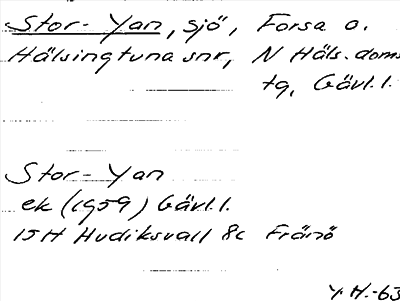 Stor-Yan, sjö, Forsa o.
Hälsingtuna snr, N Häls. doms
tg, Gävl.l.
Stor-Yan
ek (1959) Gävl.l.
15H Hudiksvall 8c Fränö
Y.H.-63